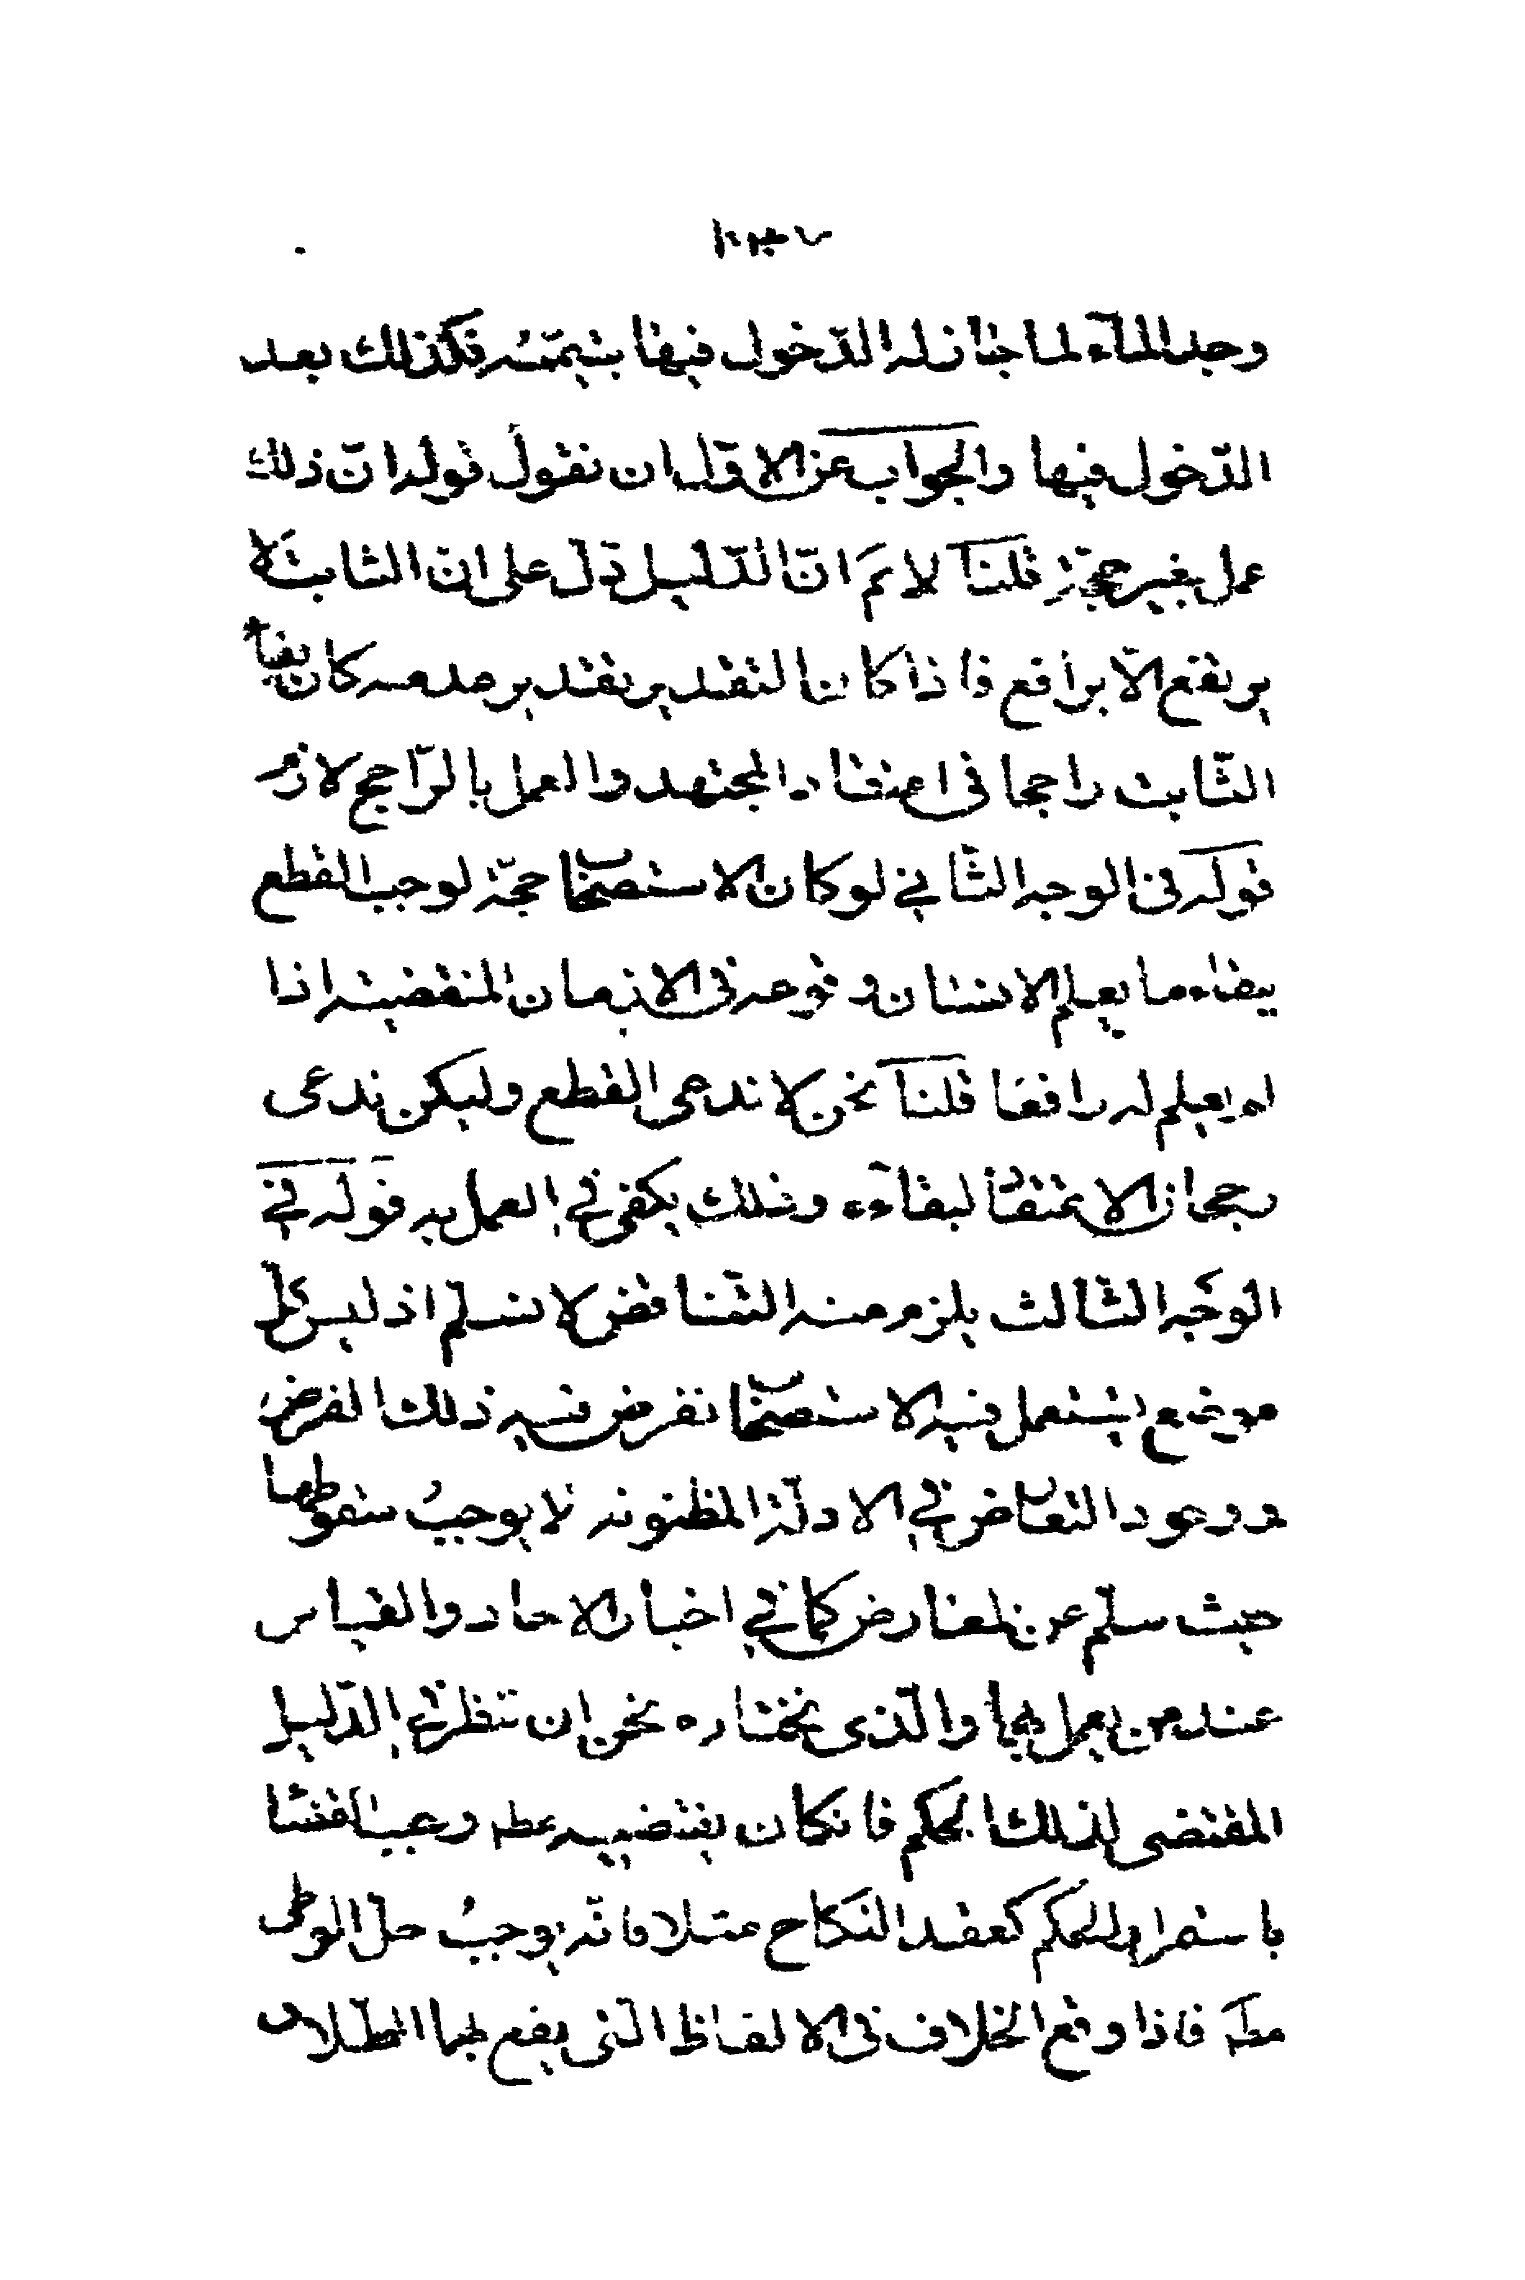 وجد الماء لما جاز له الدّخول فيها بتيمّمه فكذلك بعد
الدّخول فيها والجواب عن الاوّل ان نقول قوله انّ ذلك
عمل بغير حجّة قلنا لا نم انّ الدّليل دلّ على انّ الثابت لا
يرتفع الّا برافع فاذا كان التقدير تقدير عدمه كان بقاء
الثّابت راجحا فى اعتقاد المجتهد والعمل بالرّاجح لازم
قوله فى الوجه الثّاني لو كان الاستصحاب حجّة لوجب القطع
ببقاء ما يعلم الانسان وقوعه فى الازمان المنقضية اذا
لم يعلم له رافعا قلنا نحن لا ندعى القطع وليكن ندعى
رجحان الاعتقاد لبقاءه وذلك يكفى في العمل به قوله في
الوجه الثالث يلزم منه التّناقض لا نسلّم اذ ليس كلّ
موضع يستعمل فيه الاستصحاب نفرض فيه ذلك الفرض
ووجود التعارض في الادلّة المظنونه لا يوجب سقوطها
حيث سلّم عن المعارض كما في اخبار الاحاد والقياس
عند من يعمل بهما والّذى نختاره نحن ان ننظر في الدّليل
المقتضى لذلك الحكم فان كان يقتضيه مطه وجب القضاء
باستمرار الحكم كعقد النكاح مثلا فانّه يوجب حلّ الوطى
مطه فاذا وقع الخلاف فى الالفاظ الّتى يقع بها الطلاق